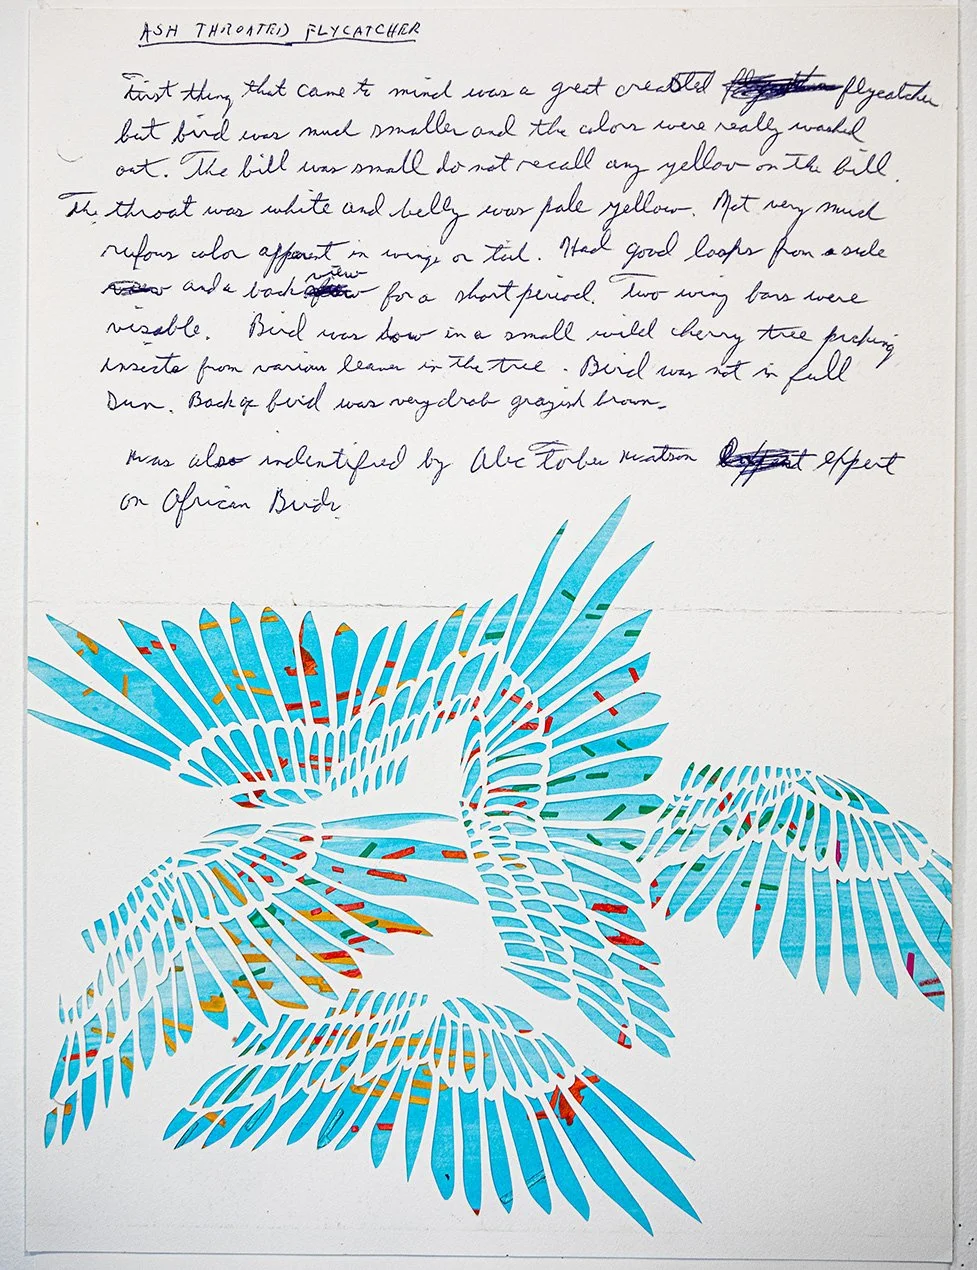 ASH THROATED FLYCATCHER
First thing that came to mind was a great creasted flycatcher
but bird was much smaller and the colors were really washed
out. The bill was small do not recall any yellow on the bill.
The throat was white and belly was pale yellow. Not very much
rufous color apparent in wings or tail. Had good looks from a side
and a back view for a short period. Two wing bars were
visable. Bird was low in a small wild cherry tree picking
insects from various leaves in the tree. Bird was not in full
Sun. Back of bird was very drab grayish brown.
was also indentified by Alec Forbes Watson expert
on African Birds